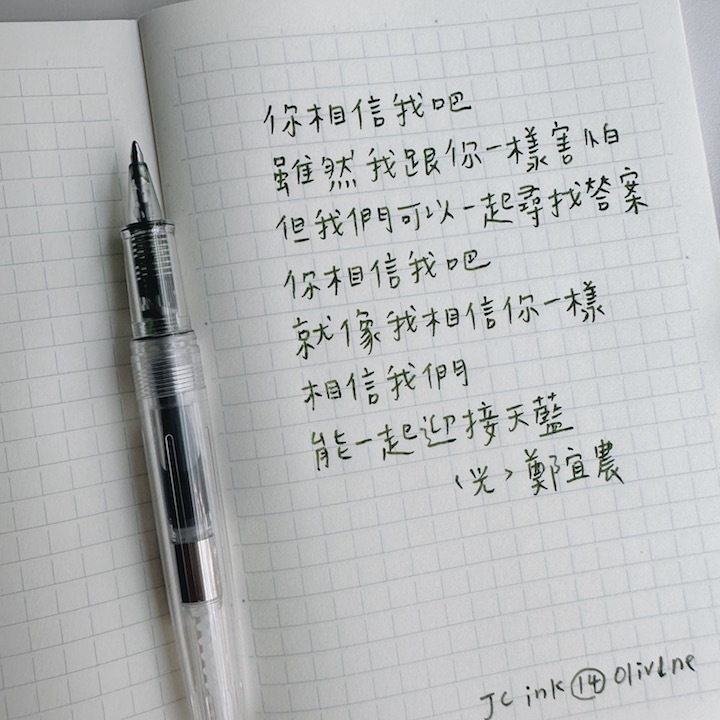 你相信我吧
雖然我跟你一樣害怕
但我們可以一起尋找答案
你相信我吧
就像我相信你一樣
相信我們
能一起迎接天藍
〈光〉鄭宜農
JC ink ⑭ Olivine